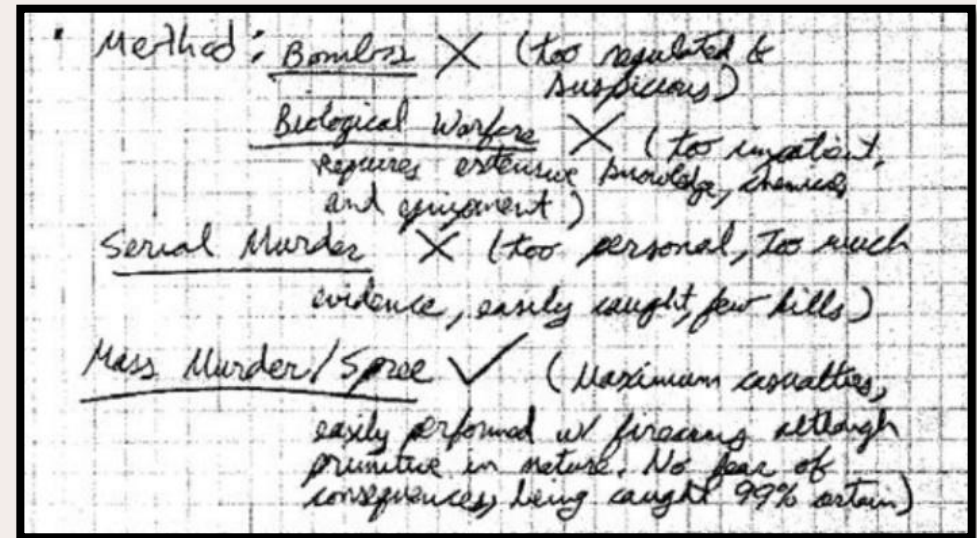 • Method: Bombs X (too regulated &
suspicious)
Biological Warfare X (too impatient,
requires extensive knowledge, chemicals,
and equipment)
Serial Murder X (too personal, too much
evidence, easily caught, few kills)
Mass Murder/Spree ✓ (Maximum casualties,
easily performed w/ firearms although
primitive in nature. No fear of
consequences, being caught 99% certain)